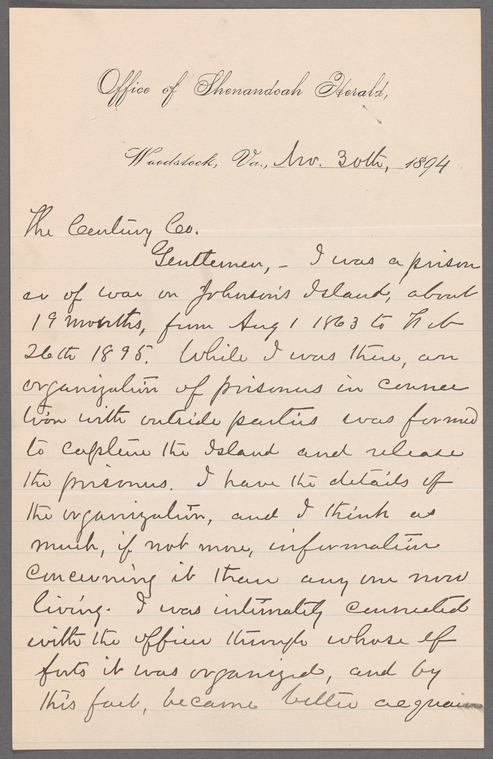 Office of Shenandoah Herald,
Woodstock, Va., Nov. 30th, 1894
The Century Co.
Gentlemen, - I was a prison
er of war on Johnson's Island, about
19 months, from Aug 1 1863 to Feb
26th 1895. While I was there, an
organization of prisoners in connec
tion with outside parties was formed
to capture the Island and release
the prisoners. I have the details of
the organization, and I think as
much, if not more, information
concerning it than any one now
living. I was intimately connected
with the officer through whose ef
forts it was organized, and by
this fact, became better acquain